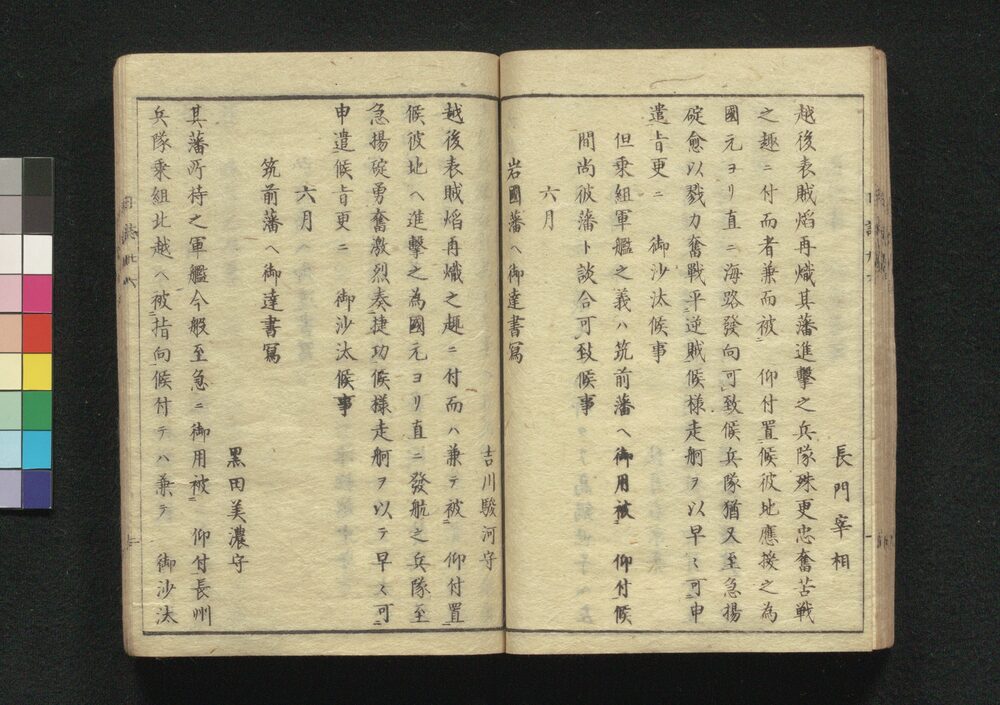 長門宰相
越後表賊焰再熾其藩進擊之兵隊殊更忠奮苦戦
之趣ニ付而者兼而被　仰付置候彼地應援之為
國元ヨリ直ニ海路發向可致候兵隊猶又至急揚
碇愈以戮力奮戰平逆賊候様走舸ヲ以早々可申
遣旨更ニ　御沙汰候事
但乗組軍艦之義ハ筑前藩ヘ御用被　仰付候
間尚彼藩ト談合可致候事
六月
岩國藩ヘ御達書寫
吉川駿河守
越後表賊焰再熾之趣ニ付而ハ兼テ被　仰付置
候彼地ヘ進擊之為國元ヨリ直ニ發航之兵隊至
急揚碇勇奮激烈奏捷功候様走舸ヲ以テ早々可
申遣候旨更ニ　御沙汰候事
六月
筑前藩ヘ御達書寫
黒田美濃守
其藩所持之軍艦今般至急ニ御用被　仰付長州
兵隊乗組北越ヘ被指向候付テハ兼テ　御沙汰